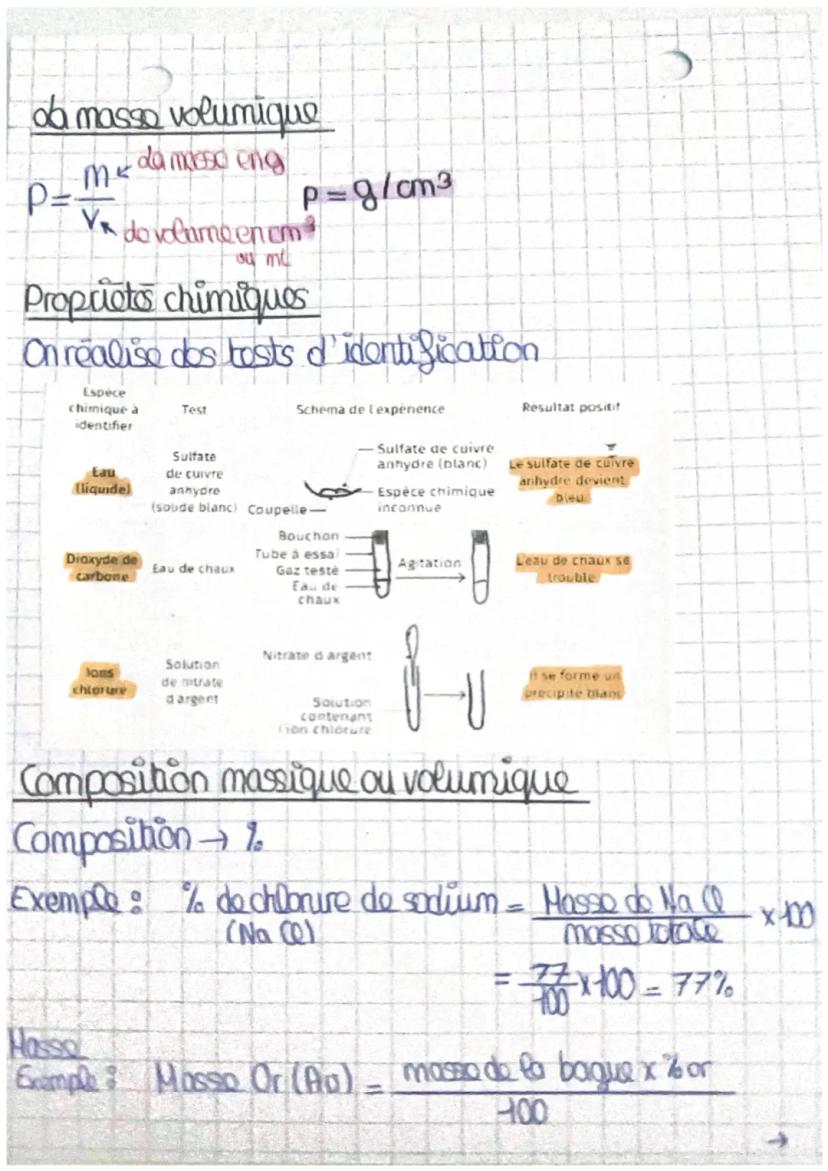 La masse volumique
P = m/V
La masse en g
Le volume en cm³
ou mL
P = g/cm³
Propriétés chimiques
On réalise des tests d'identification
Espèce chimique à identifier
Test
Schéma de l'expérience
Résultat positif
Eau (liquide)
Sulfate de cuivre anhydre (solide blanc)
Coupelle
Sulfate de cuivre anhydre (blanc)
Espèce chimique inconnue
Le sulfate de cuivre anhydre devient bleu
Dioxyde de carbone
Eau de chaux
Bouchon
Tube à essai
Gaz testé
Eau de chaux
Agitation
L'eau de chaux se trouble
Ions chlorure
Solution de nitrate d'argent
Nitrate d'argent
Solution contenant l'ion chlorure
Il se forme un précipité blanc
Composition massique ou volumique
Composition → %
Exemple : % de chlorure de sodium = Masse de NaCl / masse totale x 100
(NaCl)
= 77/100 x 100 = 77%
Masse
Exemple : Masse Or (Au) = masse de la bague x % or / 100
→